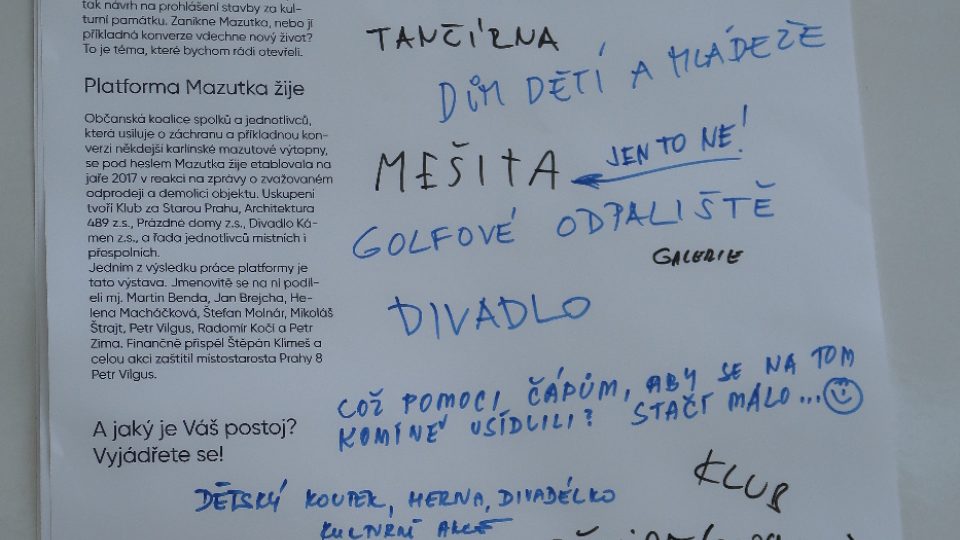 tak návrh na prohlášení stavby za kul-
turní památku. Zanikne Mazutka, nebo jí
příkladná konverze vdechne nový život?
To je téma, které bychom rádi otevřeli.
Platforma Mazutka žije
Občanská koalice spolků a jednotlivců,
která usiluje o záchranu a příkladnou kon-
verzi někdejší karlínské mazutové výtopny,
se pod heslem Mazutka žije etablovala na
jaře 2017 v reakci na zprávy o zvažovaném
odprodeji a demolici objektu. Uskupení
tvoří Klub za Starou Prahu, Architektura
489 z.s., Prázdné domy z.s., Divadlo Ká-
men z.s., a řada jednotlivců místních i
přespolních.
Jedním z výsledku práce platformy je
tato výstava. Jmenovitě se na ní podíl-
eli mj. Martin Benda, Jan Brejcha, He-
lena Macháčková, Štefan Molnár, Mikoláš
Štrajt, Petr Vilgus, Radomír Kočí a Petr
Zíma. Finančně přispěl Štěpán Klimeš a
celou akci zaštítil místostarosta Prahy 8
Petr Vilgus.
A jaký je Váš postoj?
Vyjádřete se!
TANČÍRNA
DŮM DĚTÍ A MLÁDEŽE
MEŠITA
JEN TO NE!
GOLFOVÉ ODPALIŠTĚ
GALERIE
DIVADLO
COŽ POMOCI ČÁPŮM, ABY SE NA TOM
KOMÍNĚ USÍDLILI? STAČÍ MÁLO...
KLUB
DĚTSKÝ KOUTEK, HERNA, DIVADÉLKO
KULTURNÍ AKCE